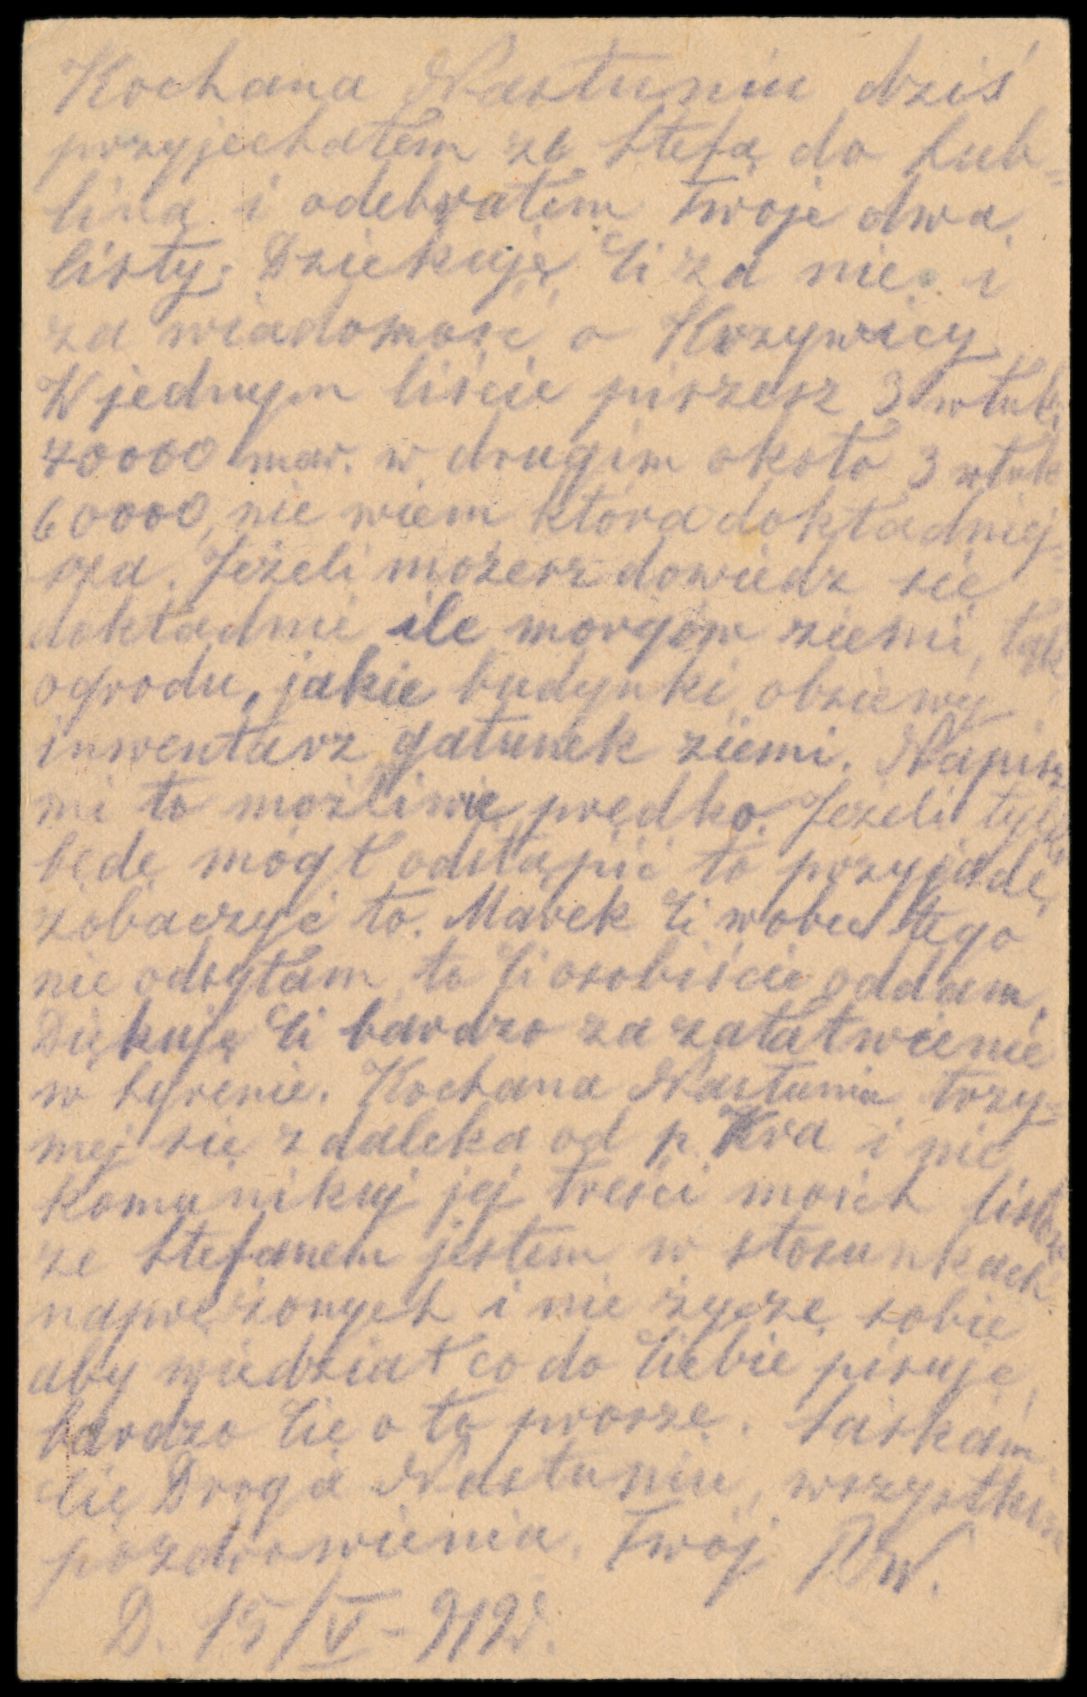 Kochana Nastuniu dziś
przyjechałem ze Stefą do Lub-
lina i odebrałem Twoje dwa
listy. Dziękuję Ci za nie i
za wiadomość o Krzywicy
W jednym liście piszesz 3 włuk.
70000 mar. w drugim około 3 włuk
60000, nie wiem która dokładniej-
sza. Jeżeli możesz dowiedz się
dokładnie ile morgów ziemi, łąk
ogrodu, jakie budynki, obsiewy
inwentarz gatunek ziemi. Napisz
mi to możliwie prędko. Jeżeli tylko
będę mógł odstąpić to przyjadę
zobaczyć to. Marek Ci wobec tego
nie odsyłam, to Ci osobiście oddam.
Dziękuję Ci bardzo za załatwienie
w . Kochana Nastuniu trzy-
mej się z daleka od p. Kra i nie
komunikuj jej treści moich listów
ze Stefanem jestem w stosunkach
naprężonych i nie życzę sobie
aby wiedział co do Ciebie pisuję,
bardzo Cię o to proszę. Ściskam
Cię Droga Nastuniu, wszystkim
pozdrowienia. Twój
D. 15/V - 919r.